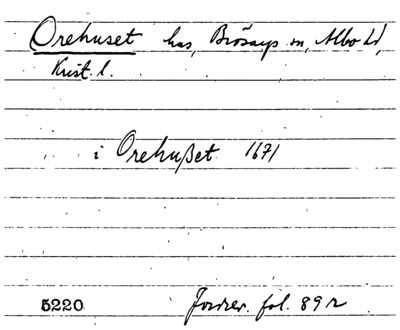 Orehuset hus, Brösarps sn, Albo hd,
Krist. l.
i Orehußet 1671
5220 Jordrev. fol. 89 r